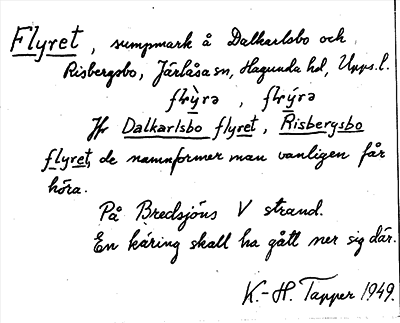 Flyret, sumpmark å Dalkarlsbo och
Risbergsbo, Järlåsa sn, Hagunda hd, Upps. l.
flỳrə, flýrə
Jfr Dalkarlsbo flyret, Risbergsbo
flyret, de namnformer man vanligen får
höra.
På Bredsjöns V strand.
En käring skall ha gått ner sig där.
K.-H. Tapper 1949.